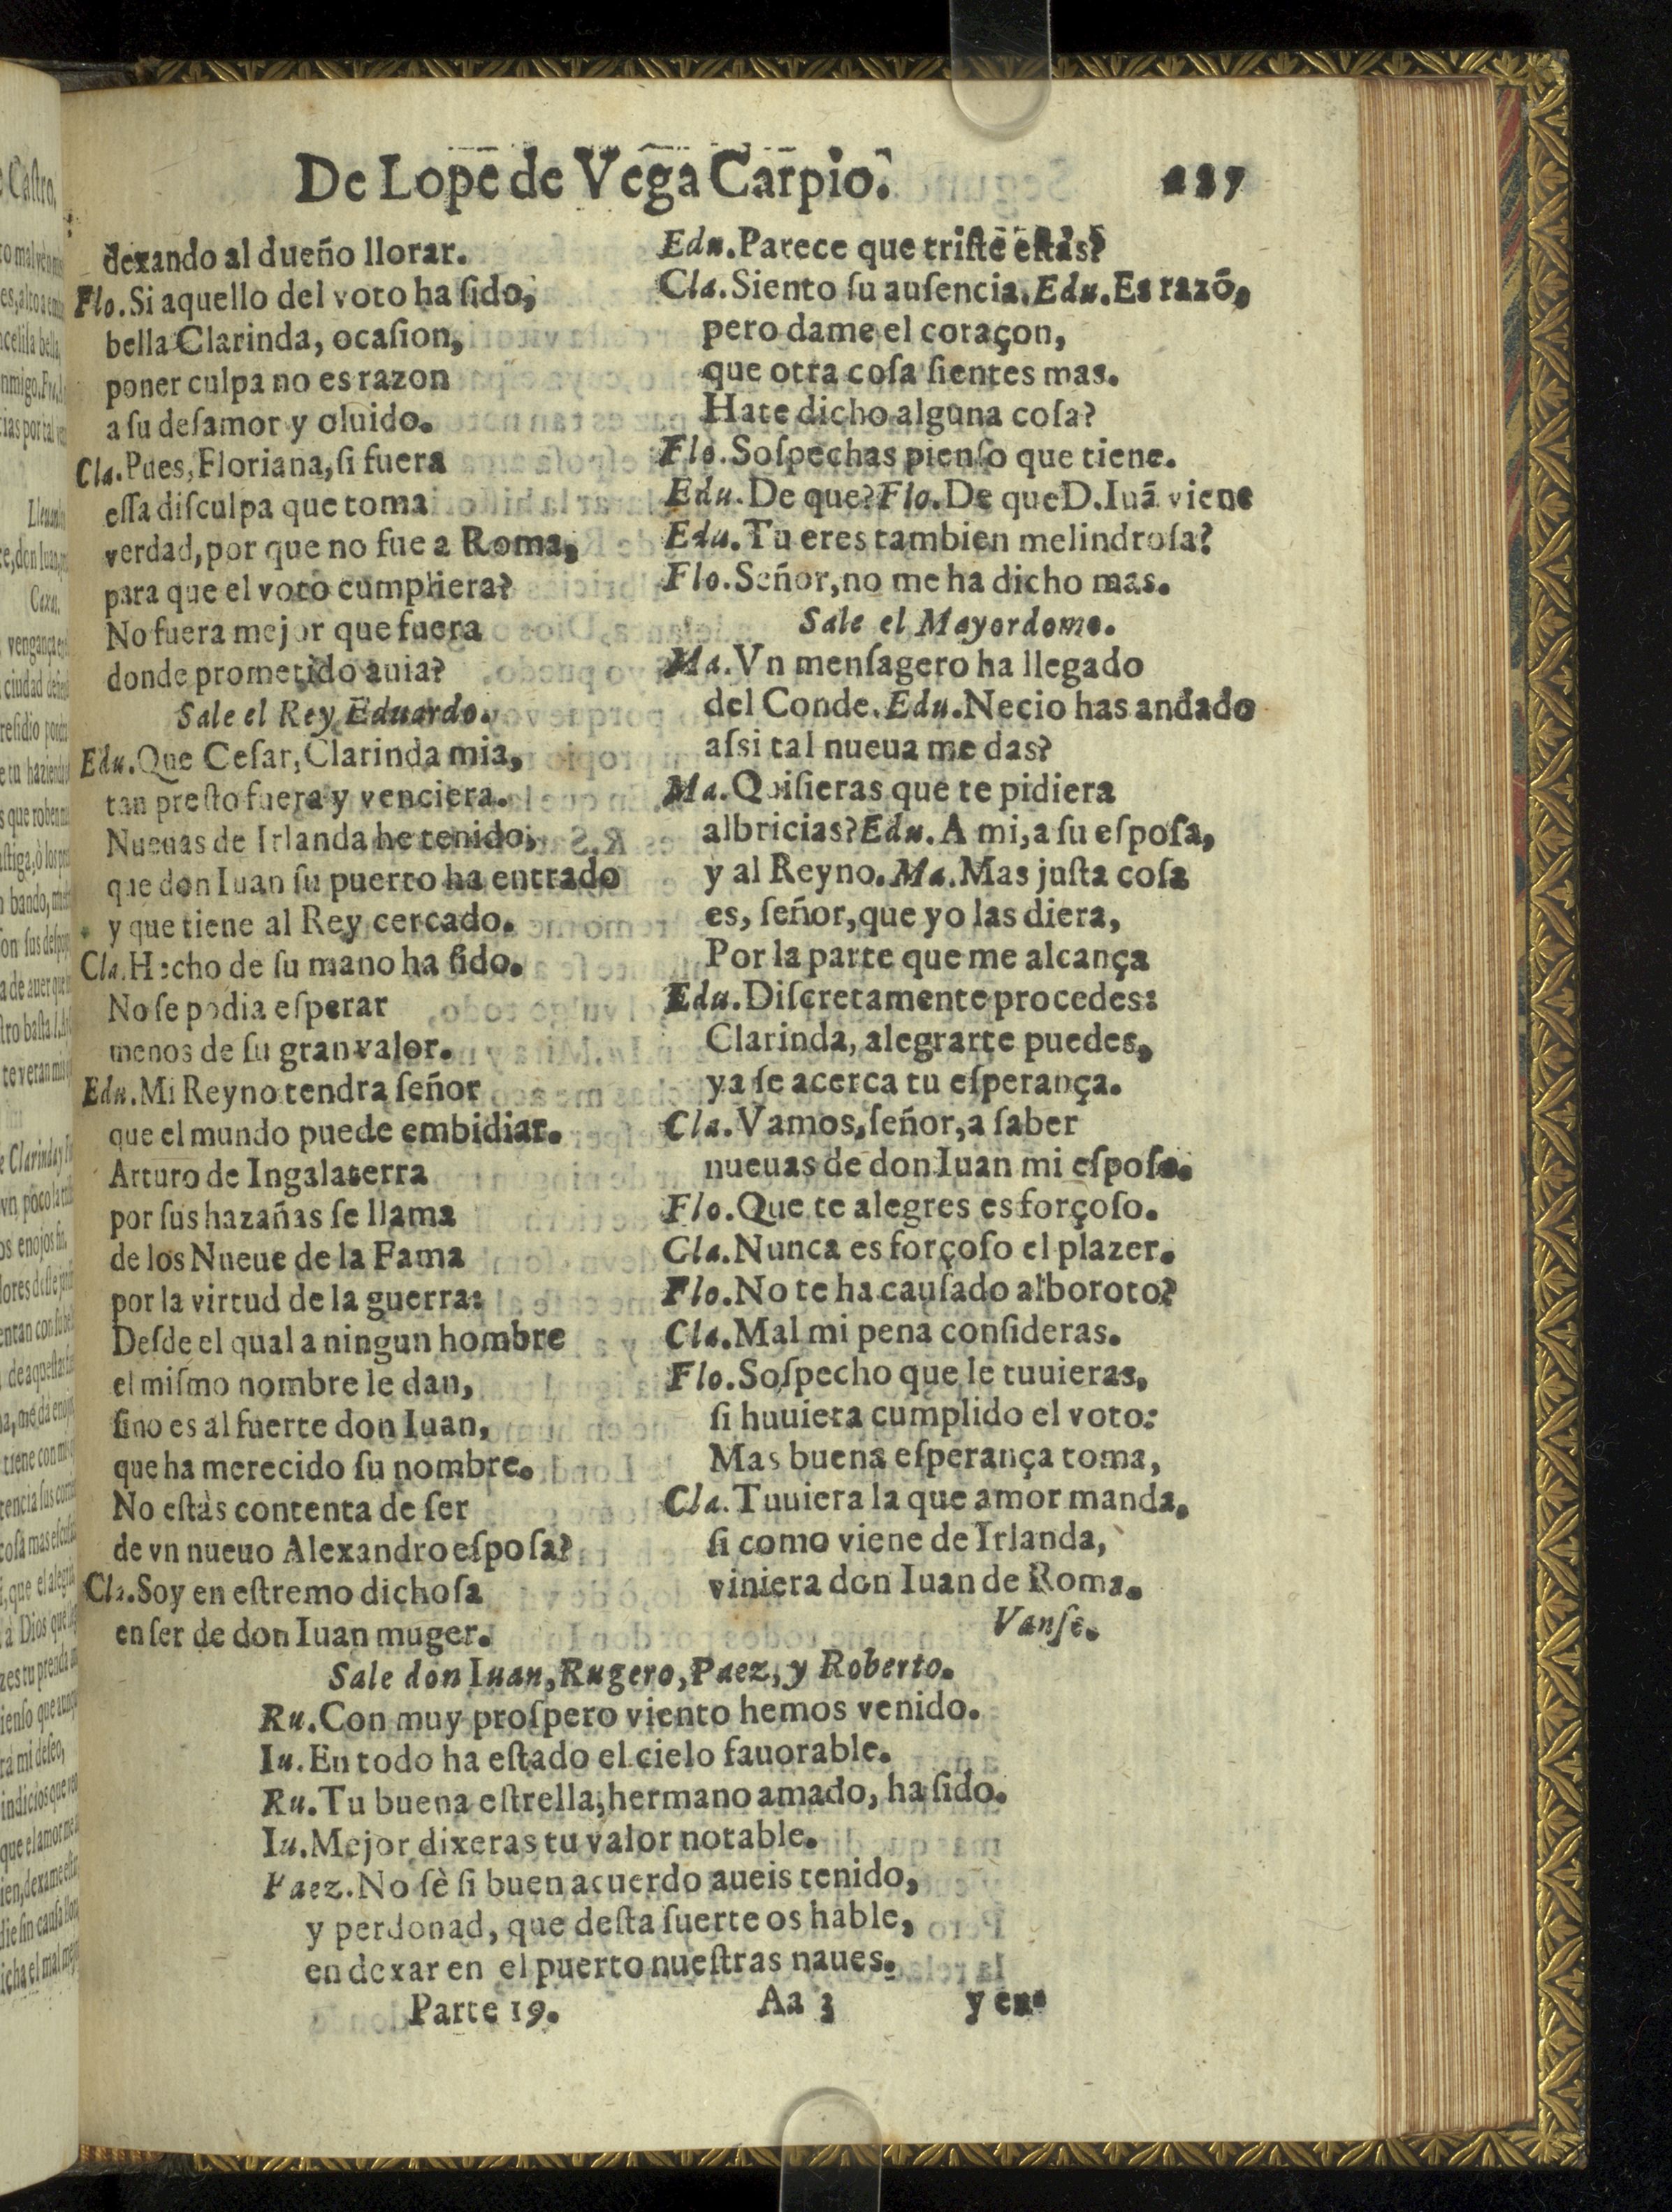 De Lope de Vega Carpio.
dexando al dueño llorar.
Flo. Si aquello del voto ha ſido,
bella Clarinda, ocaſion,
poner culpa no es razon
a ſu deſamor y oluido.
Cla. Pues, Floriana, ſi fuera
eſſa diſculpa que toma
verdad, por que no fue a Roma,
para que el voto cumpliera?
No fuera mejor que fuera
donde prometido auia?
Sale el Rey Eduardo.
Edu. Que Ceſar, Clarinda mia,
tan preſto fuera y venciera.
Nueuas de Irlanda he tenido,
que don Iuan ſu puerto ha entrado
y que tiene al Rey cercado.
Cla. Hecho de ſu mano ha ſido.
No ſe podia eſperar
menos de ſu gran valor.
Edu. Mi Reyno tendra ſeñor
que el mundo puede embidiar.
Arturo de Ingalaterra
por ſus hazañas ſe llama
de los Nueue de la Fama
por la virtud de la guerra:
Deſde el qual a ningun hombre
el miſmo nombre le dan,
ſino es al fuerte don Iuan,
que ha merecido ſu nombre.
No eſtàs contenta de ſer
de vn nueuo Alexandro eſpoſa?
Cla. Soy en eſtremo dichoſa
en ſer de don Iuan muger.
Edu. Parece que triſte eſtàs?
Cla. Siento ſu auſencia. Edu. Es razõ,
pero dame el coraçon,
que otra coſa ſientes mas.
Hate dicho alguna coſa?
Flo. Soſpechas pienſo que tiene.
Edu. De que? Flo. De que D. Iuã viene
Edu. Tu eres tambien melindroſa?
Flo. Señor, no me ha dicho mas.
Sale el Mayordomo.
Ma. Vn menſagero ha llegado
del Conde. Edu. Necio has andado
aſsi tal nueua me das?
Ma. Quiſieras que te pidiera
albricias? Edu. A mi, a ſu eſpoſa,
y al Reyno. Ma. Mas juſta coſa
es, ſeñor, que yo las diera,
Por la parte que me alcança
Edu. Diſcretamente procedes:
Clarinda, alegrarte puedes,
ya ſe acerca tu eſperança.
Cla. Vamos, ſeñor, a ſaber
nueuas de don Iuan mi eſpoſo.
Flo. Que te alegres es forçoſo.
Cla. Nunca es forçoſo el plazer.
Flo. No te ha cauſado alboroto?
Cla. Mal mi pena conſideras.
Flo. Soſpecho que le tuuieras,
ſi huuiera cumplido el voto:
Mas buena eſperança toma,
Cla. Tuuiera la que amor manda,
ſi como viene de Irlanda,
viniera don Iuan de Roma.
Vanſe.
Sale don Iuan, Rugero, Paez, y Roberto.
Ru. Con muy proſpero viento hemos venido.
Iu. En todo ha eſtado el cielo fauorable.
Ru. Tu buena eſtrella, hermano amado, ha ſido.
Iu. Mejor dixeras tu valor notable.
Paez. No ſè ſi buen acuerdo aueis tenido,
y perdonad, que deſta ſuerte os hable,
en dexar en el puerto nueſtras naues.
Parte 19. Aa 3 y en-